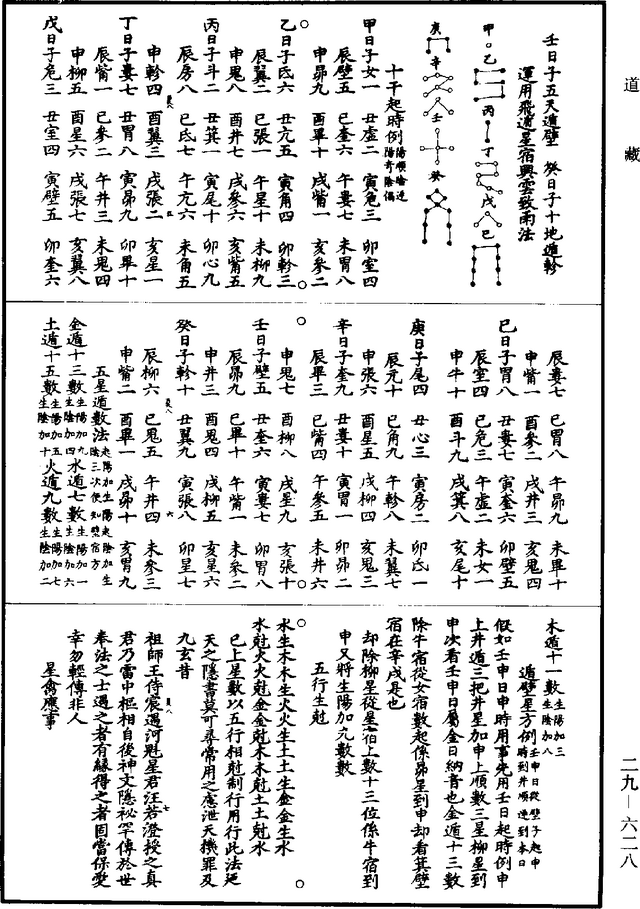 道藏
壬日子五天遁壁　癸日子十地遁軫
運用飛遁星宿興雲致雨法
甲　乙　丙　丁　戊　己
庚　辛　壬　癸
十干起時例陽順陰逆陽奇陰偶
甲日子女一　丑虛二　寅危三　卯室四
辰壁五　巳奎六　午婁七　未胃八
申昴九　酉畢十　戌觜一　亥參二
乙日子氐六　丑亢五　寅角四　卯軫三
辰翼二　巳張一　午星十　未柳九
申鬼八　酉井七　戌參六　亥觜五
丙日子斗二　丑箕一　寅尾十　卯心九
辰房八　巳氐七　午亢六　未角五
申軫四　酉翼三　戌張二　亥星一
丁日子婁七　丑胃八　寅昴九　卯畢十
辰觜一　巳參二　午井三　未鬼四
申柳五　酉星六　戌張七　亥翼八
戊日子危三　丑室四　寅壁五　卯奎六
辰婁七　巳胃八　午昴九　未畢十
申觜一　酉參二　戌井三　亥鬼四
巳日子胃八　丑婁七　寅奎六　卯壁五
辰室四　巳危三　午虛二　未女一
申牛十　酉斗九　戌箕八　亥尾十
庚日子尾四　丑心三　寅房二　卯氐一
辰亢十　巳角九　午軫八　未翼七
申張六　酉星五　戌柳四　亥鬼三
辛日子奎九　丑婁十　寅胃一　卯昴二
辰畢三　巳觜四　午參五　未井六
申鬼七　酉柳八　戌星九　亥張十
壬日子壁五　丑奎六　寅婁七　卯胃八
辰昴九　巳畢十　午觜一　未參二
申井三　酉鬼四　戌柳五　亥星六
癸日子軫十　丑翼九　寅張八　卯星七
辰柳六　巳鬼五　午井四　未參三
申觜二　酉畢一　戌昴十　亥胃九
五星遁數法
金遁十三數生陽加九生陰加四水遁七數生陽加一生陰加六
土遁十五數生陽加五生陰加十火遁九數生陽加七生陰加二
木遁十一數生陽加三生陰加八
遁壁星方例壬申日從壁子起申時到井順遶到本日
假如壬申日申時用事先用壬日起時例申
上井遁三把井星加申上順數三星柳星到
申次看壬申日屬金日納音也金遁十三數
除牛宿從女宿數起係昴星到申却看箕壁
宿在辛戌是也
却除柳星從星宿上數十三位係牛宿到
申又將生陽加九數數
五行生尅
水生木木生火火生土土生金金生水
水尅火火尅金金尅木木尅土土尅水
巳上星數以五行相尅制行用行此法迺
天之隱書莫可尋常用之慮泄天機罪及
九玄昔
祖師王侍宸遇河魁星君汪若澄授之真
君乃雷中樞相自後神文隱祕罕傳於世
奉法之士遇之者有緣得之者固當保愛
幸勿輕傳非人
星禽應事
二九—六二八